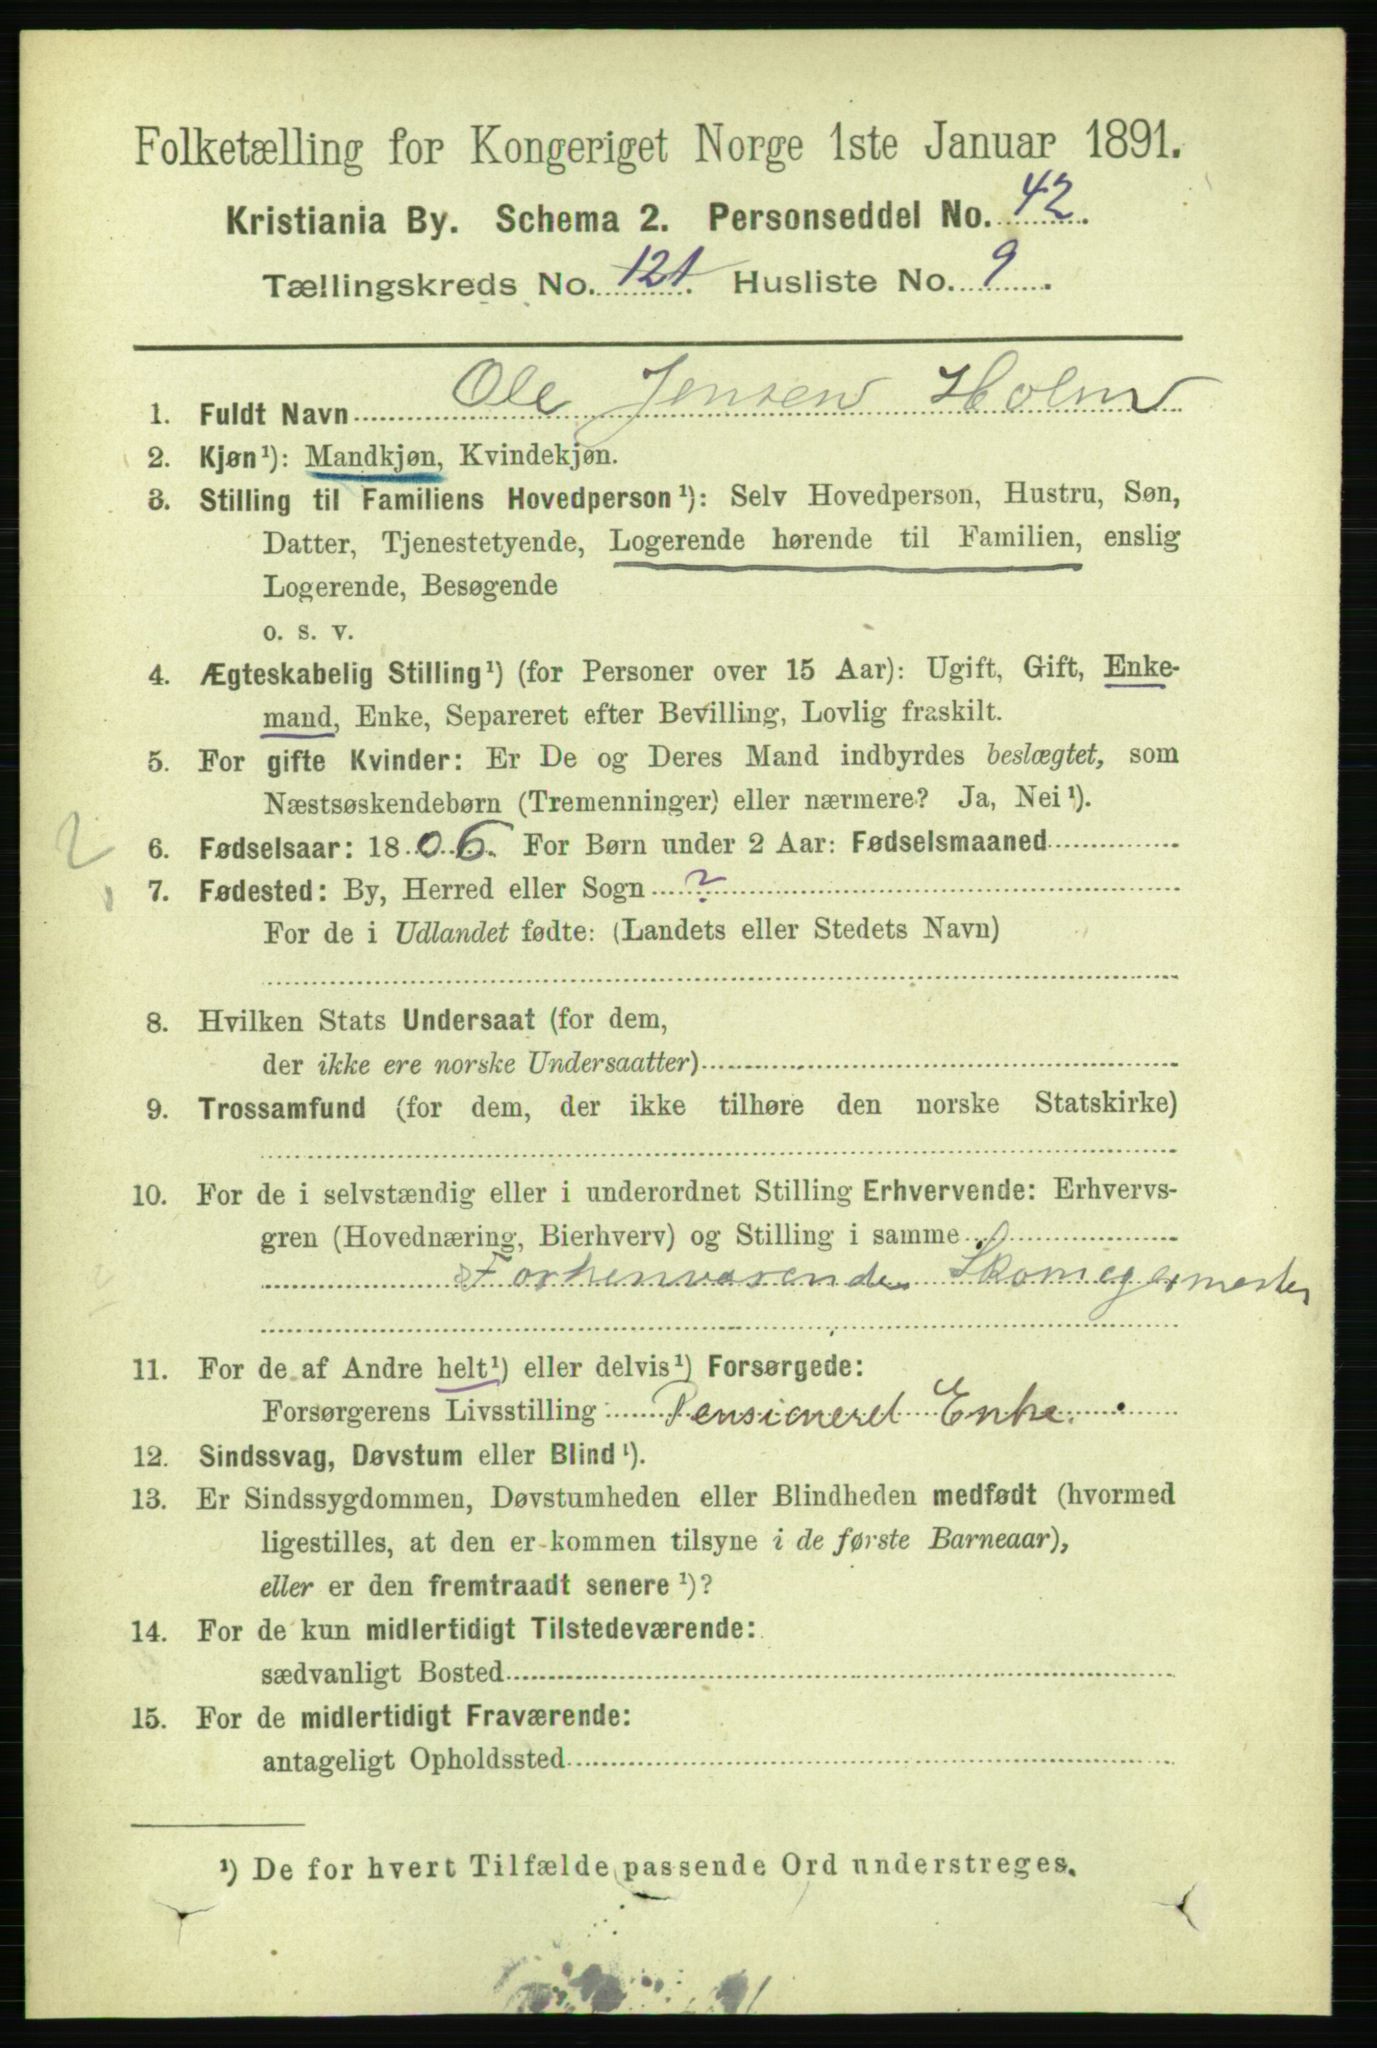 Folketælling for Kongeriget Norge 1ste Januar 1891.
Kristiania By. Schema 2. Personseddel No. 42.
Tællingskreds No. 121. Husliste No. 9.
1. Fuldt Navn Ole Jensen Holm
2. Kjøn¹): Mandkjøn, Kvindekjøn.
3. Stilling til Familiens Hovedperson¹): Selv Hovedperson, Hustru, Søn,
Datter, Tjenestetyende, Logerende hørende til Familien, enslig
Logerende, Besøgende
o. s. v.
4. Ægteskabelig Stilling¹) (for Personer over 15 Aar): Ugift, Gift, Enke-
mand, Enke, Separeret efter Bevilling, Lovlig fraskilt.
5. For gifte Kvinder: Er De og Deres Mand indbyrdes beslægtet, som
Næstsøskendebørn (Tremenninger) eller nærmere? Ja, Nei¹).
2
6. Fødselsaar: 1806. For Børn under 2 Aar: Fødselsmaaned
7. Fødested: By, Herred eller Sogn ?
For de i Udlandet fødte: (Landets eller Stedets Navn)
8. Hvilken Stats Undersaat (for dem,
der ikke ere norske Undersaatter)
9. Trossamfund (for dem, der ikke tilhøre den norske Statskirke)
10. For de i selvstændig eller i underordnet Stilling Erhvervende: Erhvervs-
gren (Hovednæring, Bierhverv) og Stilling i samme
Forhenværende Skomagermester
11. For de af Andre helt¹) eller delvis¹) Forsørgede:
Forsørgerens Livsstilling Pensioneret Enke.
12. Sindssvag, Døvstum eller Blind¹).
13. Er Sindssygdommen, Døvstumheden eller Blindheden medfødt (hvormed
ligestilles, at den er kommen tilsyne i de første Barneaar),
eller er den fremtraadt senere¹)?
14. For de kun midlertidigt Tilstedeværende:
sædvanligt Bosted
15. For de midlertidigt Fraværende:
antageligt Opholdssted
¹) De for hvert Tilfælde passende Ord understreges.